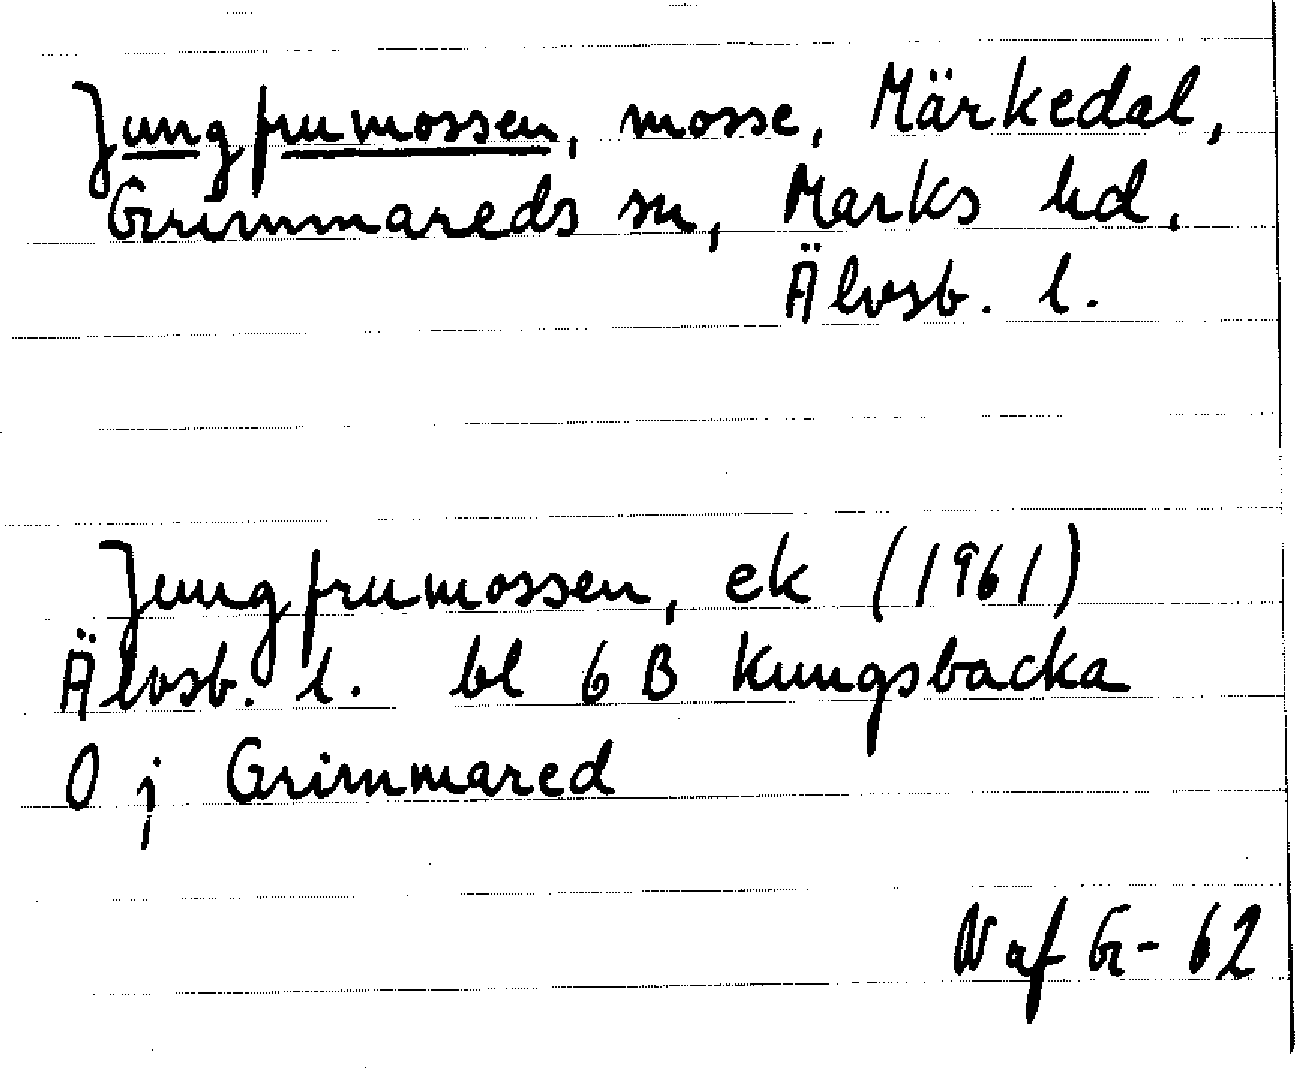 Jungfrumossen, mosse, Märkedal,
Grimmareds sn, Marks hd,
Älvsb. l.
Jungfrumossen, ek (1961)
Älvsb. l. bl 6 B Kungsbacka
O j Grimmared
N af G- 62